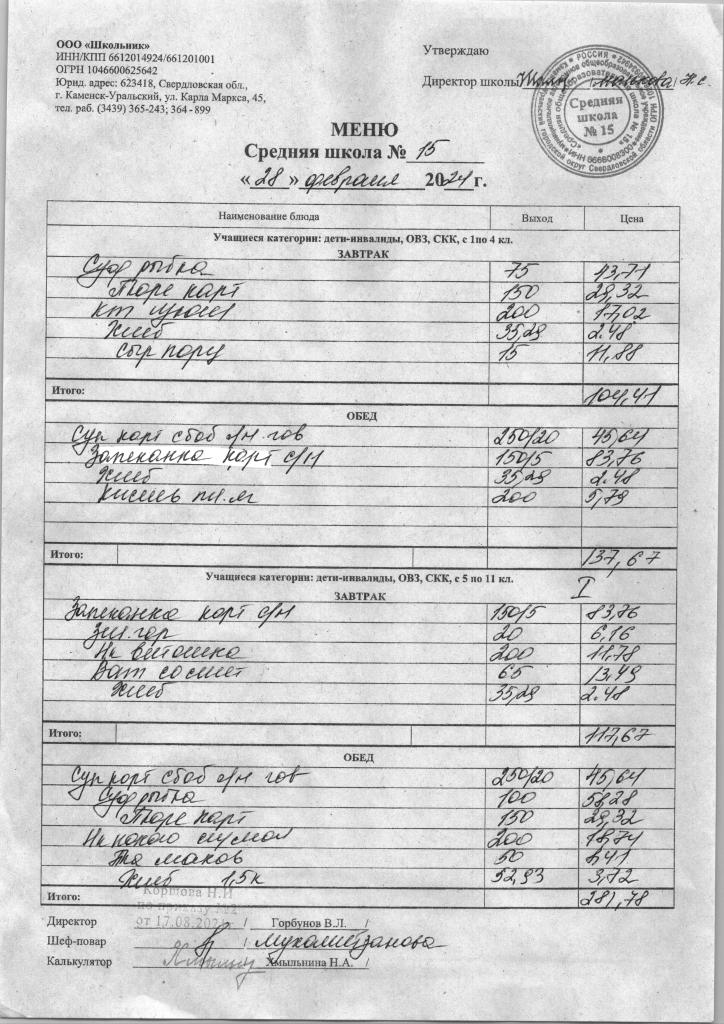 ООО «Школьник»
ИНН/КПП 6612014924/661201001
ОГРН 1046600625642
Юрид. адрес: 623418, Свердловская обл.,
г. Каменск-Уральский, ул. Карла Маркса, 45,
тел. раб. (3439) 365-243; 364 - 899
Утверждаю
Директор школы
Средняя школа № 15
МЕНЮ
Средняя школа № 15
« 28 » февраля 2024 г.
Наименование блюда Выход Цена
Учащиеся категории: дети-инвалиды, ОВЗ, СКК, с 1по 4 кл.
ЗАВТРАК
Суф рыбка 75 43,71
Пюре карт 150 29,32
200 17,02
Хлеб 35,29 2.48
Сыр порц 15 11,88
Итого: 104,41
ОБЕД
Суп карт сбоб с/н гов 250/20 45,64
Запеканка карт с/н 150/5 83,76
Хлеб 35,29 2.48
Кисель пл.яг 200 5,79
Итого: 137,67
Учащиеся категории: дети-инвалиды, ОВЗ, СКК, с 5 по 11 кл. I
ЗАВТРАК
Запеканка карт с/н 150/5 83,76
Зел.гор 20 6,16
Нк витошка 200 11,78
Ват со смет 65 13,49
Хлеб 35,29 2.48
Итого: 117,67
ОБЕД
Суп карт сбоб с/н гов 250/20 45,64
Суф рыбка 100 58,28
Пюре карт 150 29,32
Нк какао 200 18,74
маков 50
Хлеб 1,5к 52,93 3,72
Итого:
Коршова Н.И
по приказу №2
от 17.08.2021
Директор / Горбунов В.Л. /
Шеф-повар / Мухаметзанова
Калькулятор Хмыльнина Н.А. /